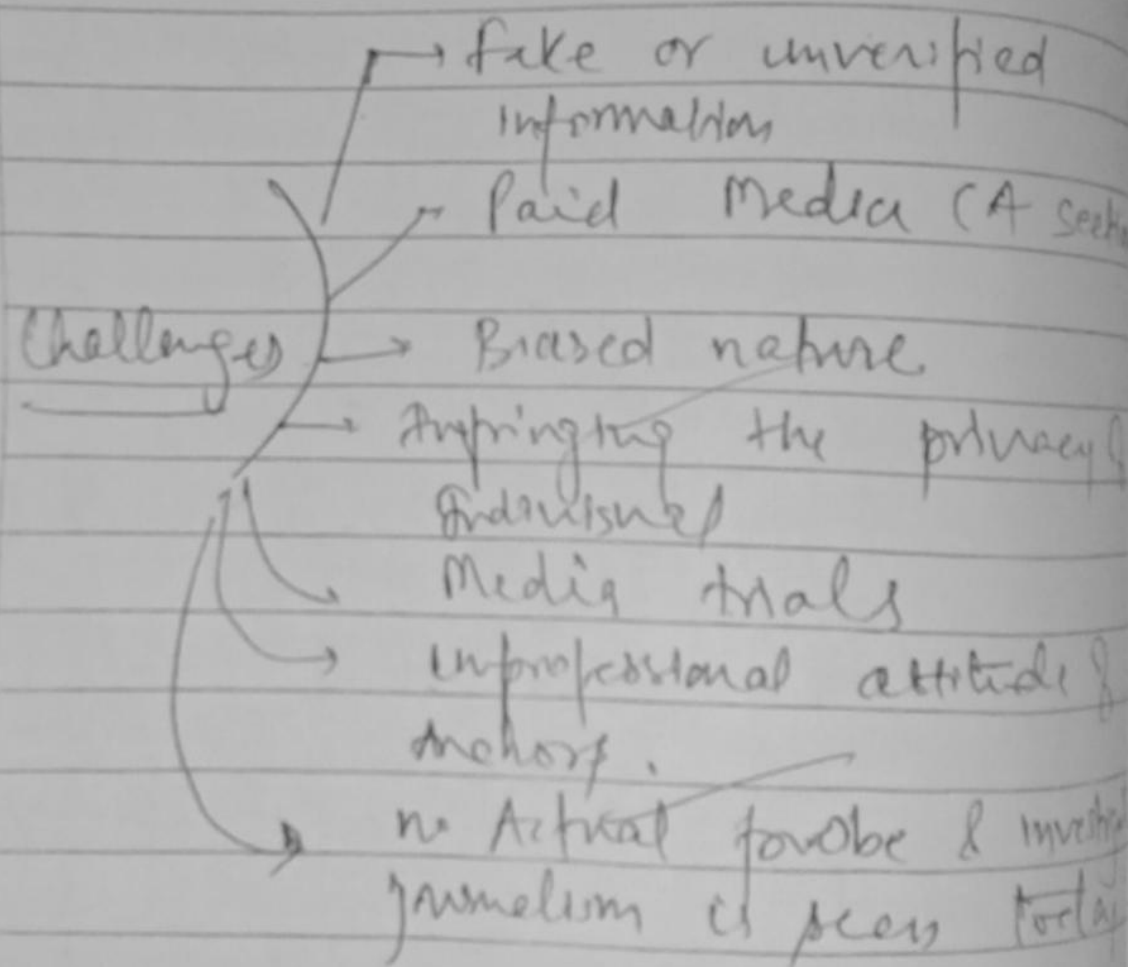 fake or unverified
information
Paid Media (A
Challenges
Biased nature
Infringing the privacy
Individual
Media trials
Unprofessional attitude
Anchors.
no Actual probe &
journalism is seen today